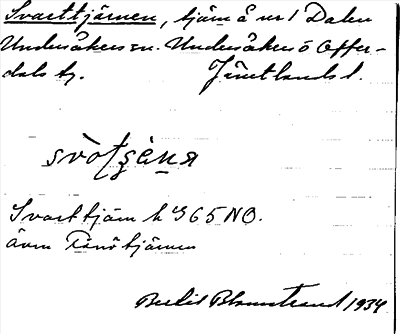 Svarttjärnen, tjärn å nr 1 Dalen
Undersåkers sn. Undersåkers o Offer-
dals tg. Jämtlands l.
svòʈʂɛ̀ṇa
Svarttjärn k 965 NO.
även Tånötjärnen
Berlit Blomstrand 1934